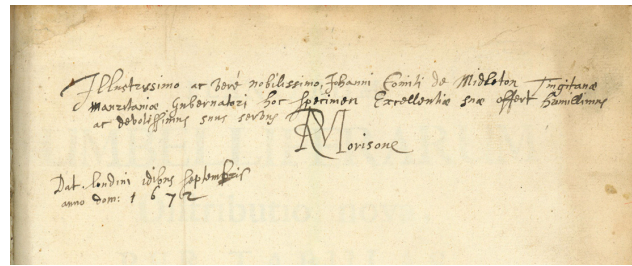 Illustrissimo ac verè nobilissimo, Johanni Comiti de Midleton Tingitanæ
Mauritaniæ Gubernatori hoc specimen Excellentiæ suæ offert humillimus
ac devotissimus suus servus
RMorisone
Dat. londini idibus septembris
anno dom: 1672